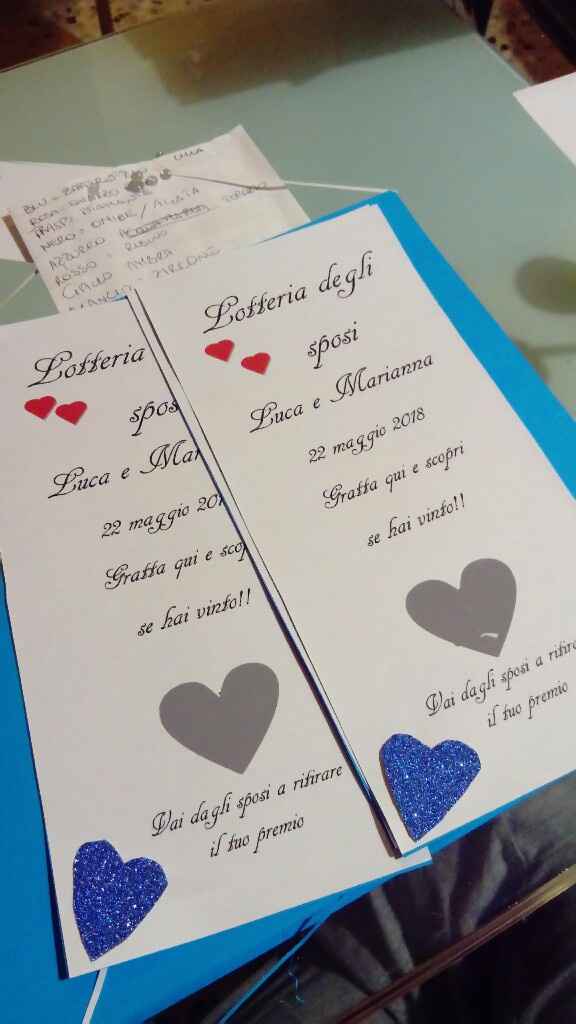 BLU =
ROSA =
NERO = ONICE / AGATA
AZZURRO
ROSSO = RUBINO
GIALLO AMBRA
ZIRCONE
Lotteria
spos
Luca e Mar
22 maggio 201
Gratta qui e scop
se hai vinto!!
Vai dagli sposi a ritirare
il tuo premio
Lotteria degli
sposi
Luca e Marianna
22 maggio 2018
Gratta qui e scopri
se hai vinto!!
Vai dagli sposi a ritira
il tuo premio